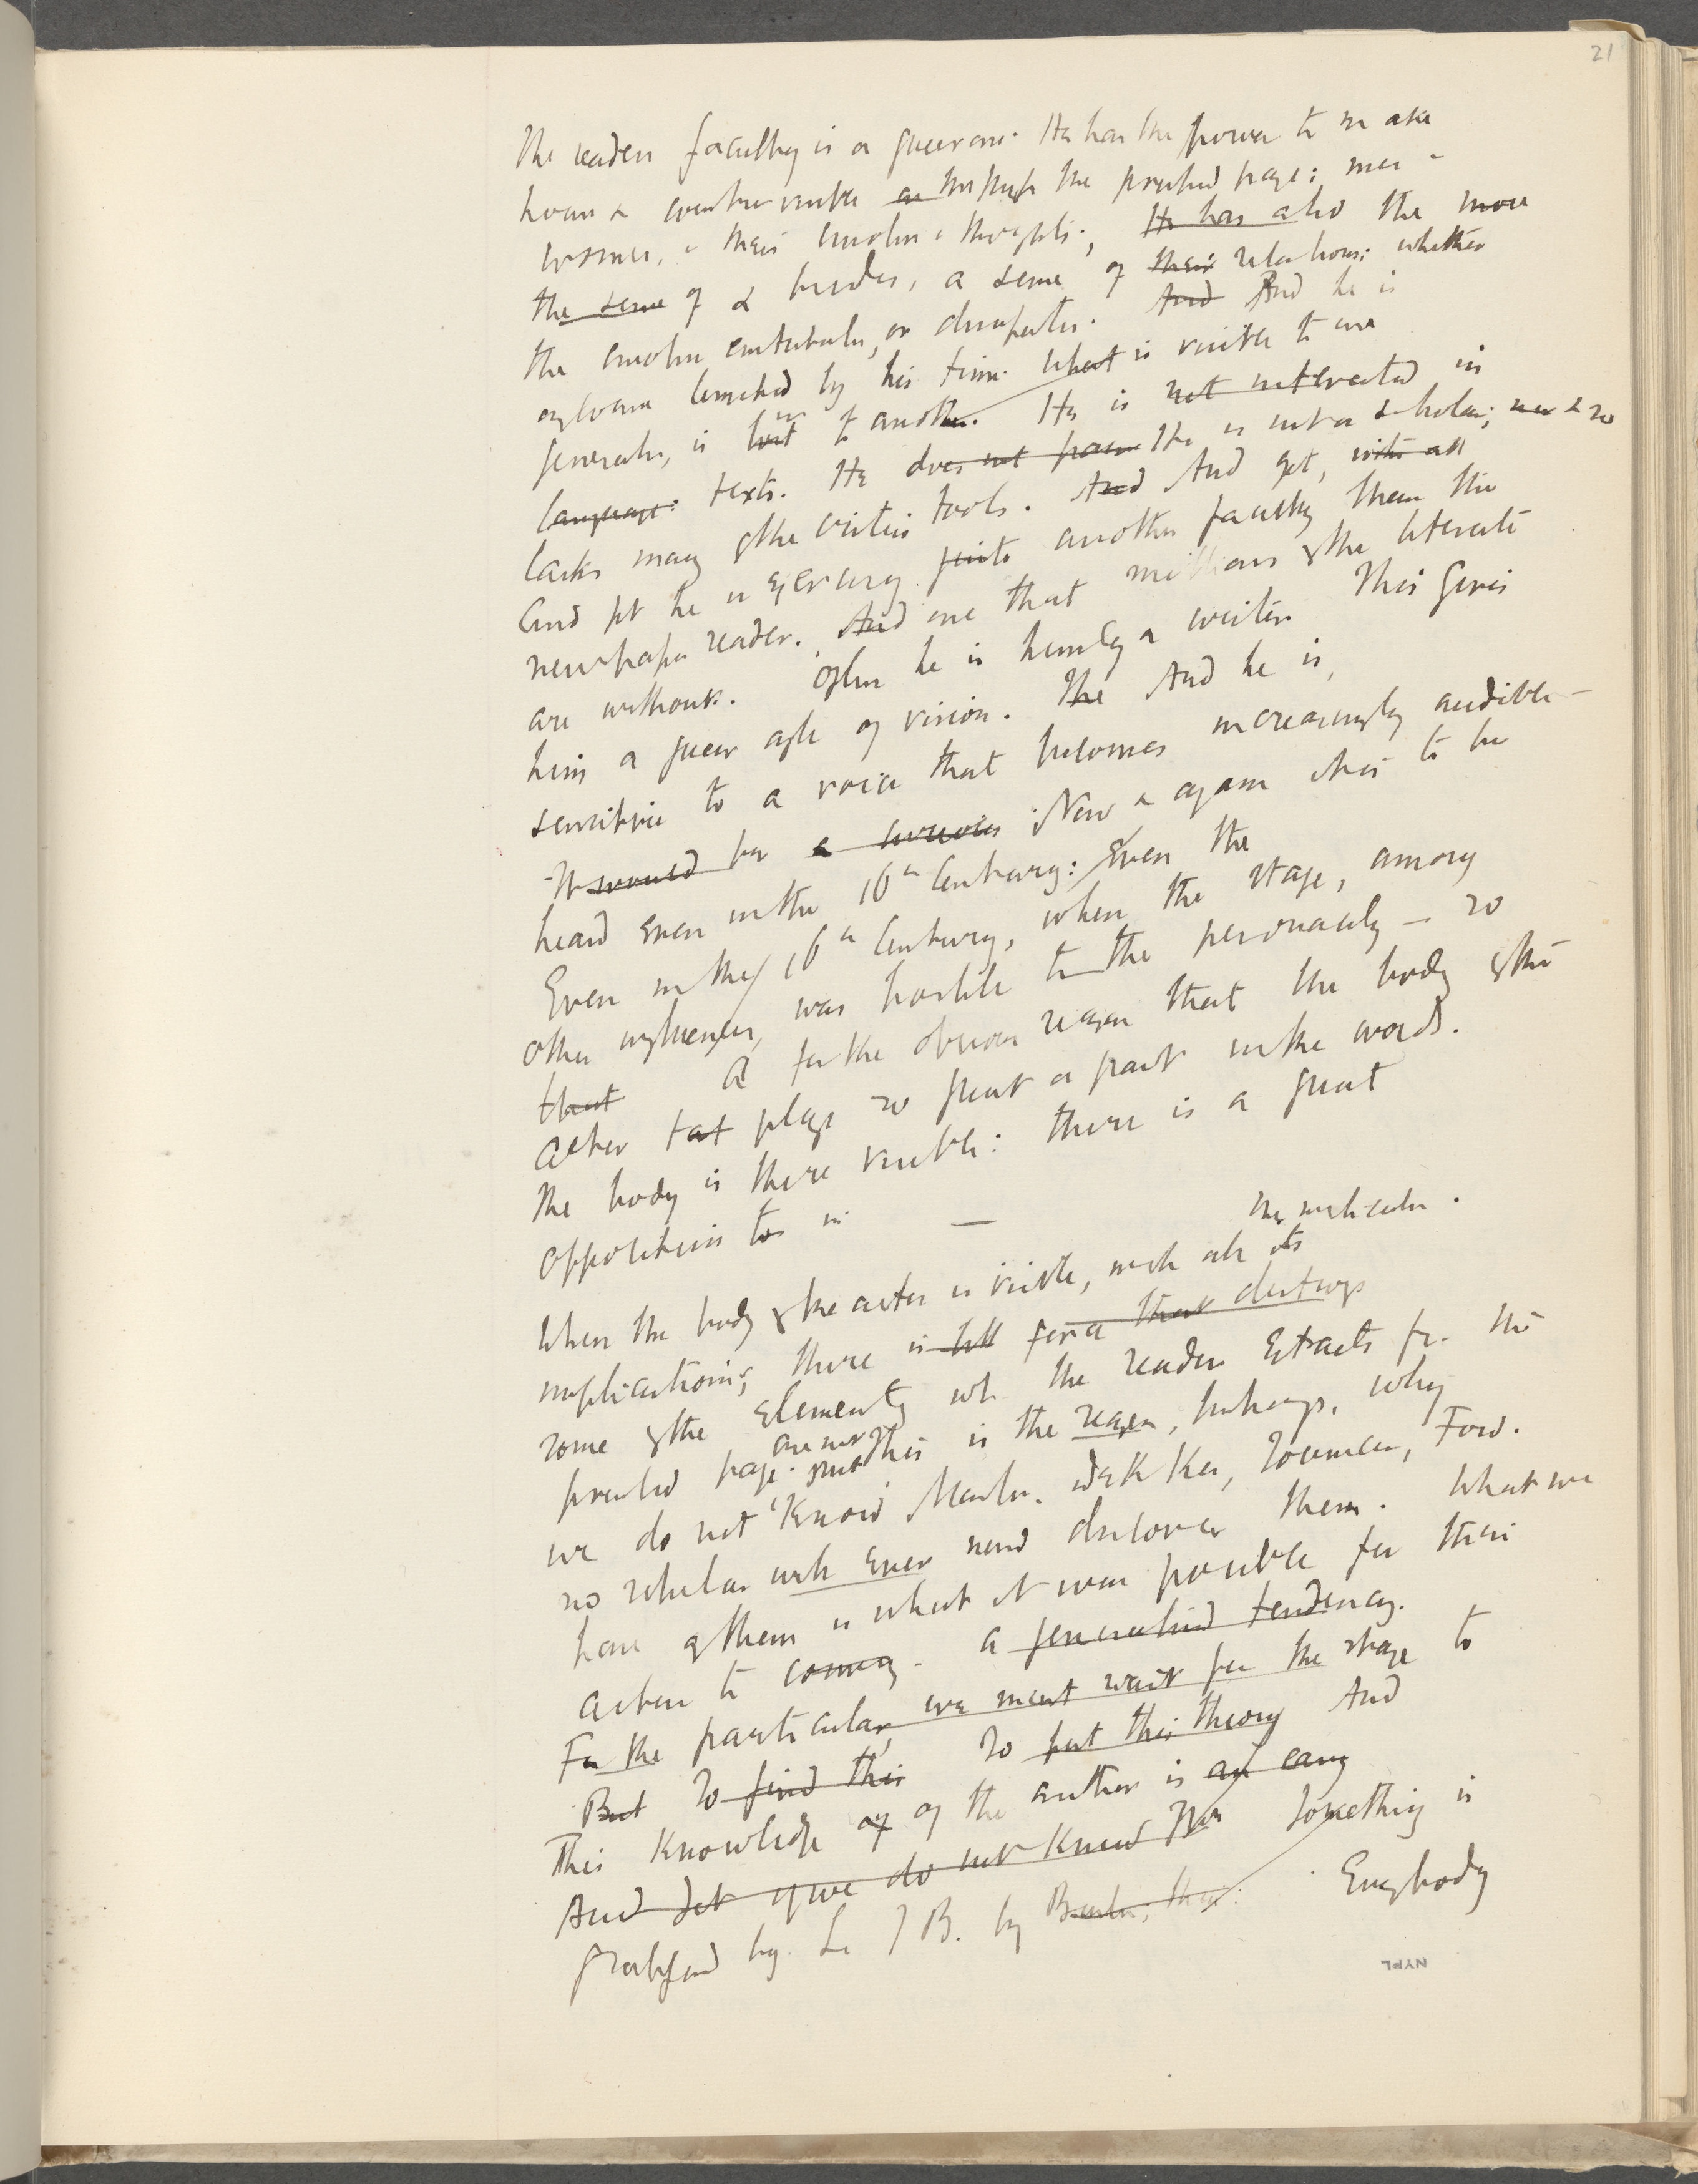 21
The readers faculty is a queer one. He has the power to make
houses & countries visible as through the printed page: men &
women, & their emotions & thoughts; He has also the more
the sense of & besides, a sense of their relations: whether
the emotion or dissipates. And And he is
of course limited by his time. What is visible to one
generation, is lost to another. He is not interested in
language: texts. He does not He is not a scholar; & so
lacks many of the critics tools. And And yet, with all
And yet he is exercising quite another faculty than the
newspaper reader. And one that millions of the literate
are without. Often he is himself a writer. This gives
him a queer angle of vision. The And he is,
sensitive to a voice that becomes increasingly audible—
It would be a Now & again it is to be
heard even in the 16th Century: Even the
Even in the 16th Century, when the stage, among
other influences, was hostile to the personality — so
that & for the obvious reason that the body of the
actor tat plays so great a part in the words.
The body is there visible: there is a great
opposition to in —
When the body of the actor is visible, with all its
implications, there is
some of the elements wh. the reader extracts fr. the
printed page. This is the reason, perhaps, why
we do not 'know' Marlow. Dekker, Tourneur, Ford.
no scholar will ever now discover them. What we
have of them is what it was possible for their
actors to convey. a generalised tendency.
For the particular, we must wait for the stage to
But To find this To put this theory And
This knowledge of of the author is an easy
And yet if we do not know Something is
by. L. T B. by Everybody
NYPL